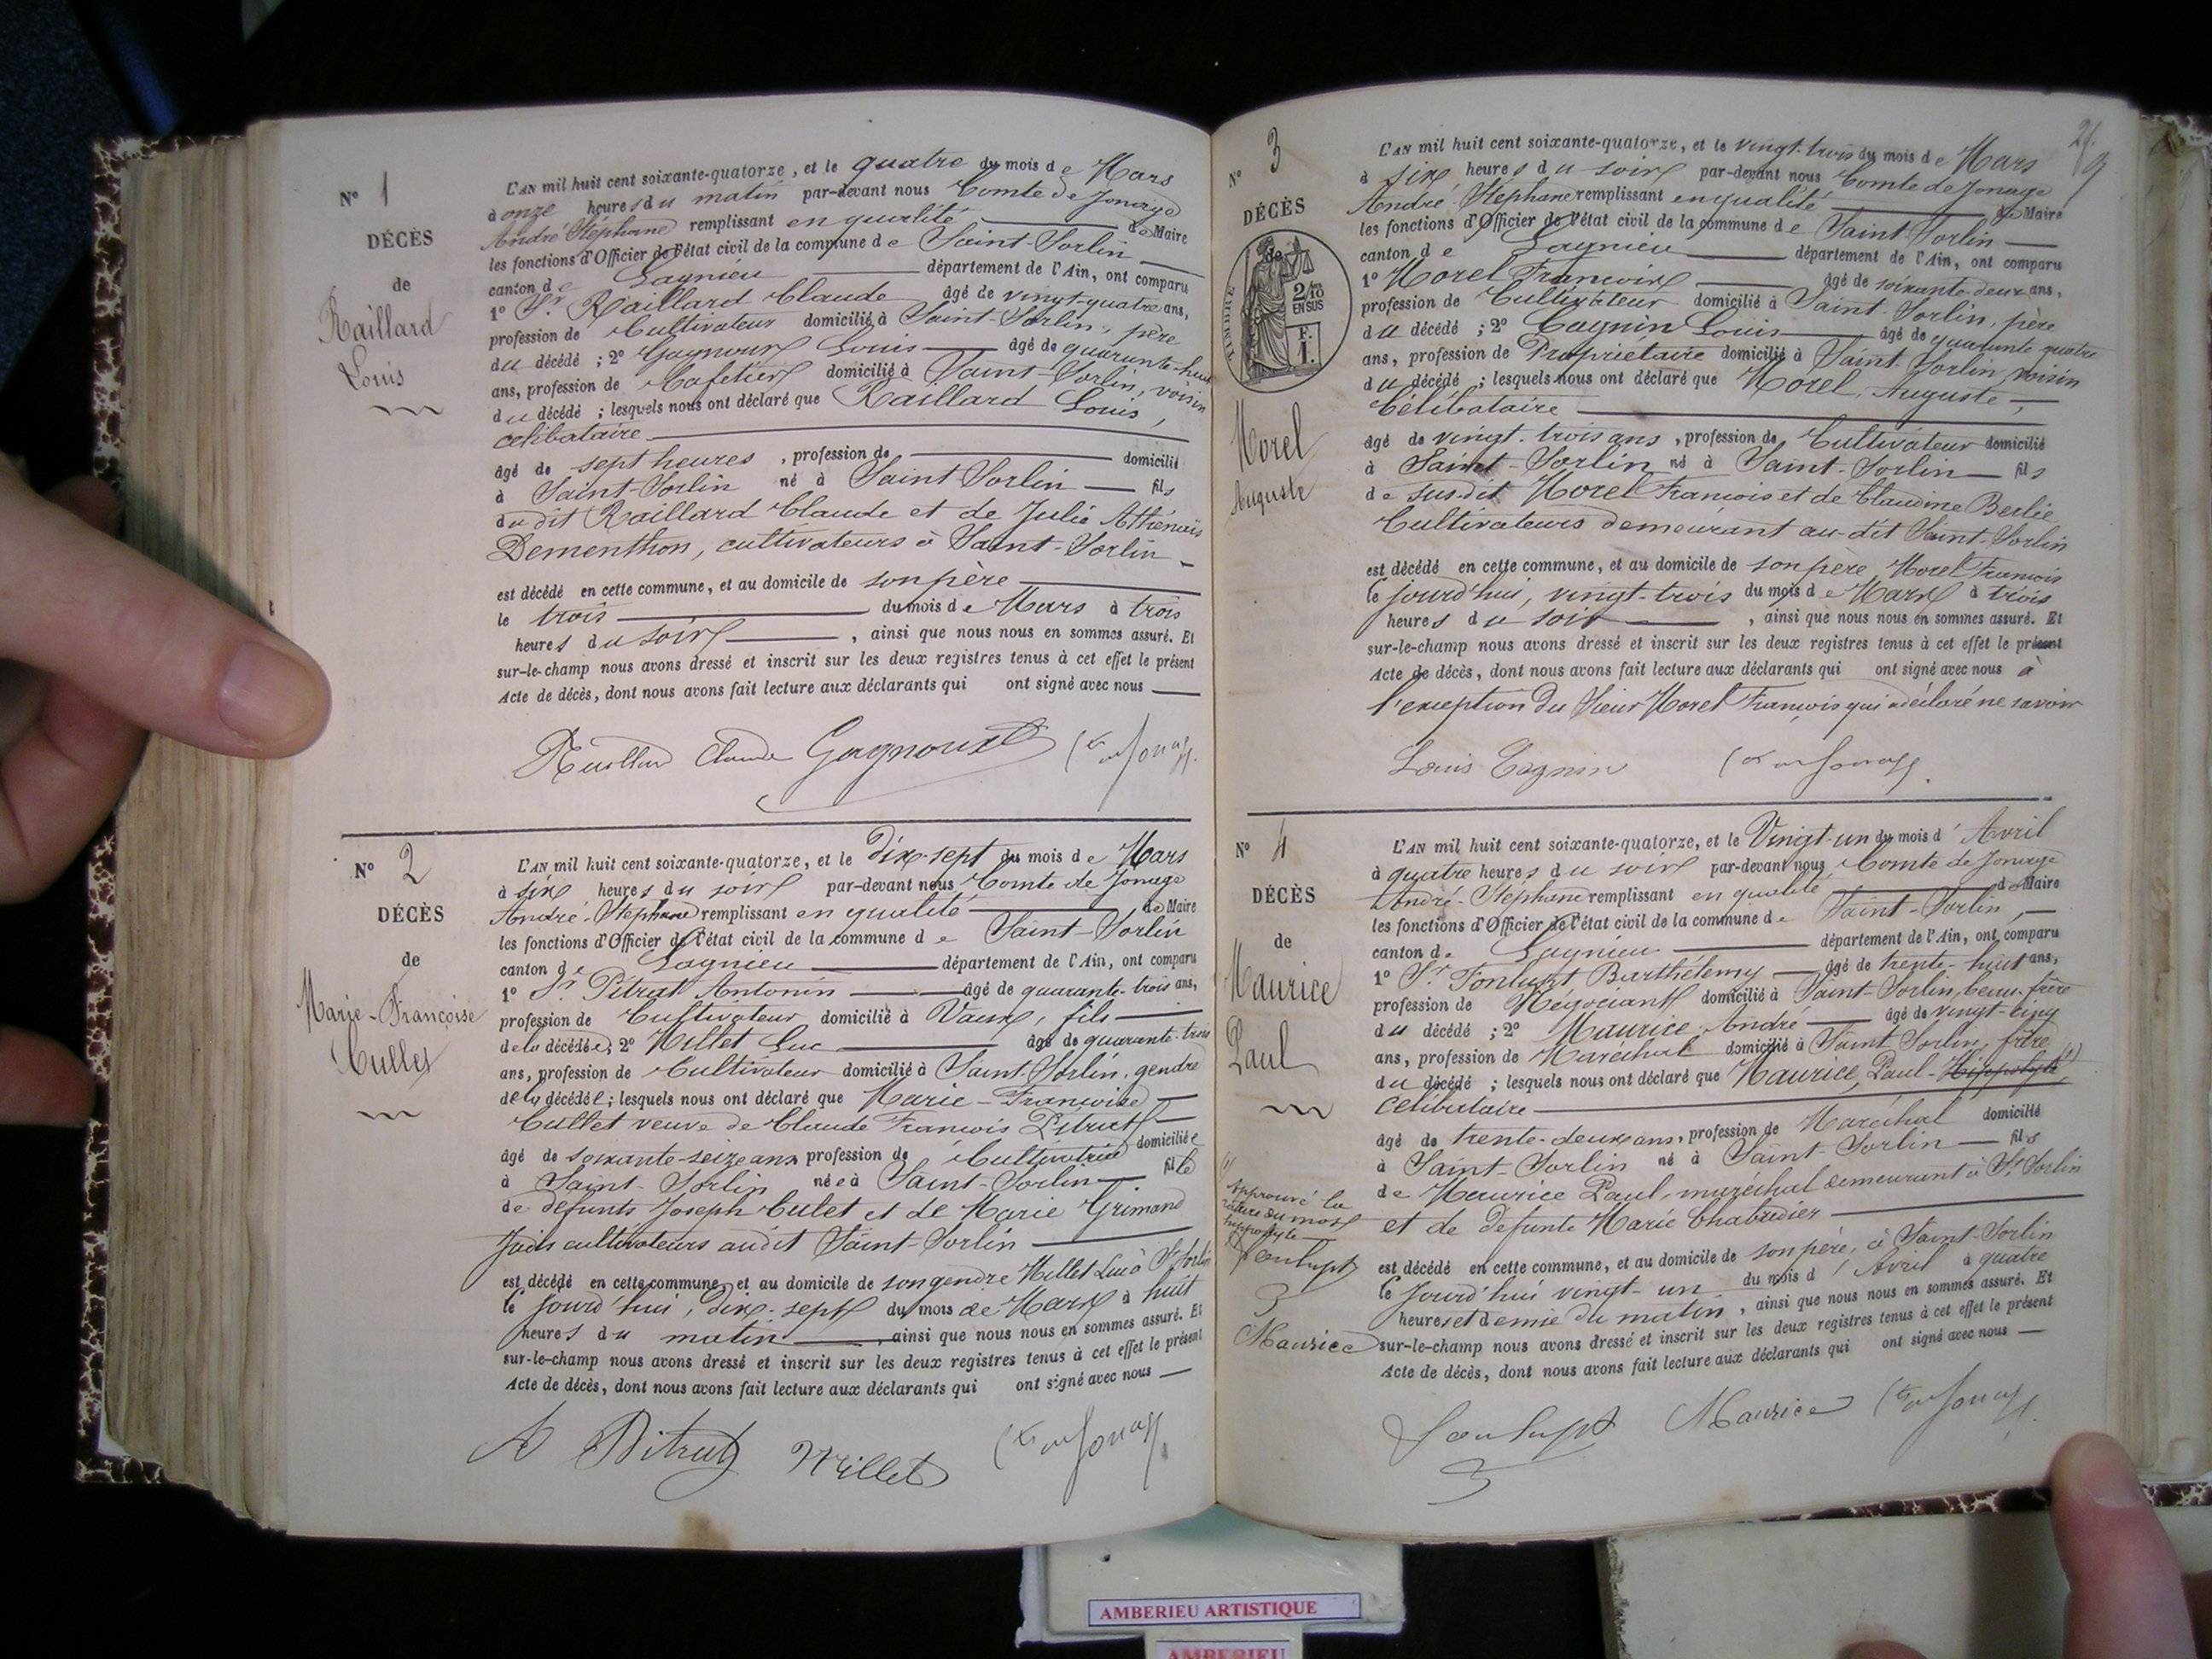 N° 1
DÉCÈS
de
Raillard
Louis
L'AN mil huit cent soixante-quatorze, et le quatre du mois de Mars
à onze heures du matin par-devant nous Comte de Jonage
André Stéphane remplissant en qualité de Maire
les fonctions d'Officier de l'état civil de la commune de Saint-Sorlin
canton de Lagnieu département de l'Ain, ont comparu
1° Sr. Raillard Claude âgé de vingt-quatre ans,
profession de Cultivateur domicilié à Saint-Sorlin, père
du décédé ; 2° Gagnoux Louis âgé de quarante-huit
ans, profession de Cafetier domicilié à Saint-Sorlin, voisin
du décédé ; lesquels nous ont déclaré que Raillard Louis,
célibataire
âgé de sept heures , profession de domicilié
à Saint-Sorlin né à Saint Sorlin fils
du dit Raillard Claude et de Julie Athénaïs
Dementhon, cultivateurs à Saint-Sorlin
est décédé en cette commune, et au domicile de son père
le trois du mois de Mars à trois
heures du soir , ainsi que nous nous en sommes assuré. Et
sur-le-champ nous avons dressé et inscrit sur les deux registres tenus à cet effet le présent
Acte de décès, dont nous avons fait lecture aux déclarants qui ont signé avec nous
Raillard Claude Gagnoux Cte de Jonage
N° 2
DÉCÈS
de
Marie-Françoise
Cullet
L'AN mil huit cent soixante-quatorze, et le dix-sept du mois de Mars
à six heures du soir par-devant nous Comte de Jonage
André-Stéphane remplissant en qualité de Maire
les fonctions d'Officier de l'état civil de la commune de Saint-Sorlin
canton de Lagnieu département de l'Ain, ont comparu
1° Sr Pitrat Antonin âgé de quarante-trois ans,
profession de Cultivateur domicilié à Vaux, fils
de la décédée; 2° Millet Luc âgé de quarante-trois
ans, profession de Cultivateur domicilié à Saint-Sorlin, gendre
de la décédée; lesquels nous ont déclaré que Marie-Françoise
Cullet veuve de Claude François Pitrat
âgé de soixante-seize ans profession de Cultivatrice domiciliée
à Saint-Sorlin née à Saint-Sorlin fille
de défunts Joseph Culet et de Marie Grimand
Jadis cultivateurs audit Saint-Sorlin
est décédé en cette commune, et au domicile de son gendre Millet Luc à St Sorlin
le jourd'hui, dix-sept du mois de Mars à huit
heures du matin , ainsi que nous nous en sommes assuré. Et
sur-le-champ nous avons dressé et inscrit sur les deux registres tenus à cet effet le présent
Acte de décès, dont nous avons fait lecture aux déclarants qui ont signé avec nous
A Pitrat Millet Cte de Jonage
21
9
N° 3
DÉCÈS
de
TIMBRE
2/10
EN SUS
F.
1.
Morel
Auguste
L'AN mil huit cent soixante-quatorze, et le vingt-trois du mois de Mars
à six heures du soir par-devant nous Comte de Jonage
André Stéphane remplissant en qualité de Maire
les fonctions d'Officier de l'état civil de la commune de Saint-Sorlin
canton de Lagnieu département de l'Ain, ont comparu
1° Morel François âgé de soixante-deux ans,
profession de Cultivateur domicilié à Saint-Sorlin, père
du décédé ; 2° Cagnin Louis âgé de quarante quatre
ans, profession de Propriétaire domicilié à Saint-Sorlin voisin
du décédé ; lesquels nous ont déclaré que Morel, Auguste,
Célibataire
âgé de vingt-trois ans , profession de Cultivateur domicilié
à Saint-Sorlin né à Saint-Sorlin fils
de susdit Morel François et de Claudine Berlie
Cultivateurs demeurant au-dit Saint-Sorlin
est décédé en cette commune, et au domicile de son père Morel François
le jourd'hui, vingt-trois du mois de Mars à trois
heures du soir , ainsi que nous nous en sommes assuré. Et
sur-le-champ nous avons dressé et inscrit sur les deux registres tenus à cet effet le présent
Acte de décès, dont nous avons fait lecture aux déclarants qui ont signé avec nous à
l'exception du Sieur Morel François qui a déclaré ne savoir
Louis Cagnin Cte de Jonage
N° 4
DÉCÈS
de
Maurice
Paul
(1)
approuvé la
rature du mot
hippolyte
Fonlupt
Maurice
L'AN mil huit cent soixante-quatorze, et le Vingt-un du mois d'Avril
à quatre heures du soir par-devant nous Comte de Jonage
André-Stéphane remplissant en qualité de Maire
les fonctions d'Officier de l'état civil de la commune de Saint-Sorlin,
canton de Lagnieu département de l'Ain, ont comparu
1° Sr. Fonlupt Barthélemy âgé de trente-huit ans,
profession de Négociant domicilié à Saint-Sorlin, beau-frère
du décédé ; 2° Maurice André âgé de vingt-cinq
ans, profession de Maréchal domicilié à Saint Sorlin, frère
du décédé ; lesquels nous ont déclaré que Maurice, Paul-Hippolyte (1)
célibataire
âgé de trente-deux ans, profession de Maréchal domicilié
à Saint-Sorlin né à Saint-Sorlin fils
de Maurice Paul, maréchal demeurant à St Sorlin
et de défunte Marie Chabudier
est décédé en cette commune, et au domicile de son père, à Saint-Sorlin
le jourd'hui vingt-un du mois d'Avril à quatre
heures et demie du matin , ainsi que nous nous en sommes assuré. Et
sur-le-champ nous avons dressé et inscrit sur les deux registres tenus à cet effet le présent
Acte de décès, dont nous avons fait lecture aux déclarants qui ont signé avec nous
Fonlupt Maurice Cte de Jonage
AMBERIEU ARTISTIQUE
AMBERIEU